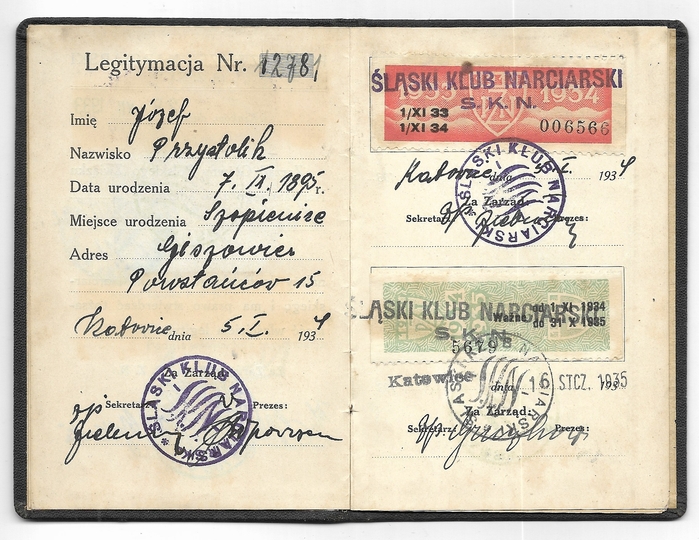 Legitymacja Nr. 12781
Imię Józef
Nazwisko Przystolik
Data urodzenia 7. 1895 r.
Miejsce urodzenia Szopienice
Adres Giszowiec
Powstańców 15
Katowice dnia 5. I. 1934
Za Zarząd:
Sekretarz: Prezes:
ŚLĄSKI KLUB NARCIARSKI
ŚLĄSKI KLUB NARCIARSKI
S. K. N.
1933 1934
1/XI 33
1/XI 34
006566
Katowice dnia I. 1934
Za Zarząd:
Sekretarz: Prezes:
ŚLĄSKI KLUB NARCIARSKI
ŚLĄSKI KLUB NARCIARSKI
Ważne od 1 XI. 1934
do 31 X 1935
S. K. N.
5679
Katowice dnia 16 STCZ. 1935
193
Za Zarząd:
Sekretarz: Prezes: